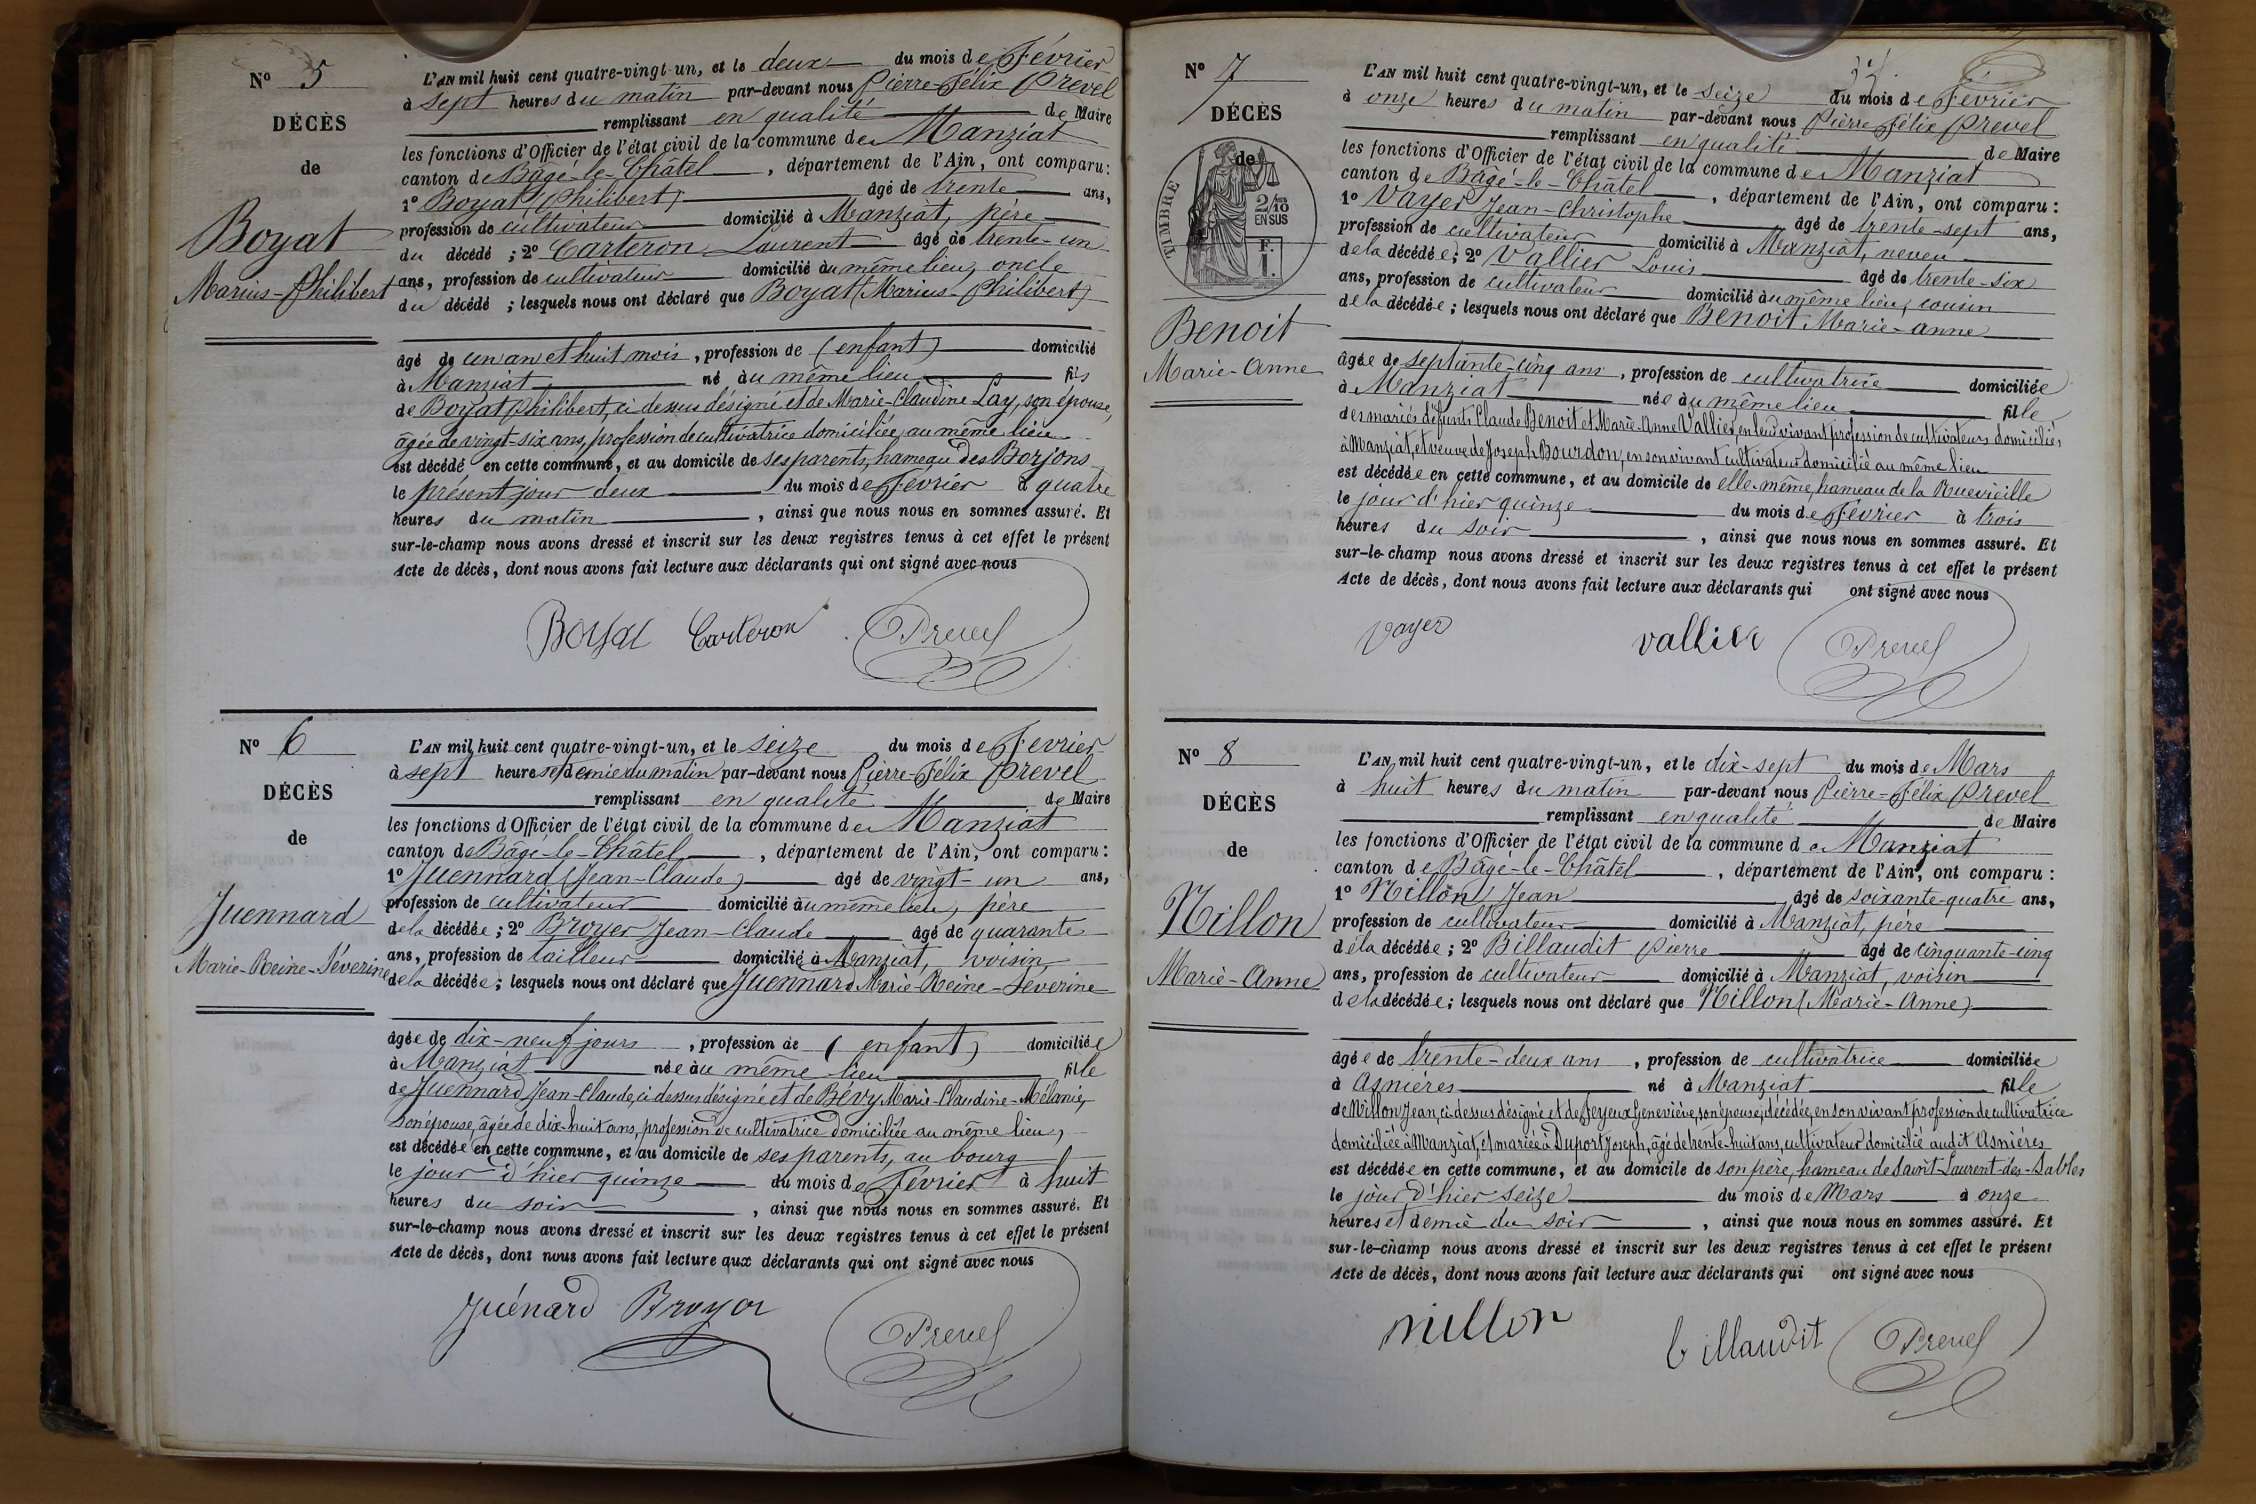 N° 5
DÉCÈS
de
Boyat
Marius-Philibert
L'AN mil huit cent quatre-vingt-un, et le deux du mois de Février
à sept heures du matin par-devant nous Pierre-Félix Prevel
remplissant en qualité de Maire
les fonctions d'Officier de l'état civil de la commune de Manziat
canton de Bâgé-le-Châtel, département de l'Ain, ont comparu:
1° Boyat (Philibert) âgé de trente ans,
profession de cultivateur domicilié à Manziat, père
du décédé ; 2° Carteron Laurent âgé de trente-un
ans, profession de cultivateur domicilié au même lieu, oncle
du décédé ; lesquels nous ont déclaré que Boyat (Marius-Philibert)
âgé de un an et huit mois, profession de (enfant) domicilié
à Manziat né au même lieu fils
de Boyat Philibert, ci dessus désigné et de Marie-Claudine Lay, son épouse,
âgée de vingt-six ans, profession de cultivatrice domiciliée au même lieu
est décédé en cette commune, et au domicile de ses parents, hameau des Borjons
le présent jour deux du mois de Février à quatre
heures du matin, ainsi que nous nous en sommes assuré. Et
sur-le-champ nous avons dressé et inscrit sur les deux registres tenus à cet effet le présent
Acte de décès, dont nous avons fait lecture aux déclarants qui ont signé avec nous
Boyat Carteron Prevel
N° 6
DÉCÈS
de
Juennard
Marie-Reine-Séverine
L'AN mil huit cent quatre-vingt-un, et le seize du mois de Février
à sept heures et demie du matin par-devant nous Pierre-Félix Prevel
remplissant en qualité de Maire
les fonctions d'Officier de l'état civil de la commune de Manziat
canton de Bâgé-le-Châtel, département de l'Ain, ont comparu:
1° Juennard (Jean-Claude) âgé de vingt-un ans,
profession de cultivateur domicilié au même lieu, père
de la décédée ; 2° Broyer Jean-Claude âgé de quarante
ans, profession de tailleur domicilié à Manziat, voisin
de la décédée ; lesquels nous ont déclaré que Juennard Marie-Reine-Séverine
âgée de dix-neuf jours, profession de (enfant) domiciliée
à Manziat née au même lieu fille
de Juennard Jean-Claude, ci dessus désigné et de Bévy Marie-Claudine-Mélanie,
son épouse, âgée de dix-huit ans, profession de cultivatrice domiciliée au même lieu,
est décédée en cette commune, et au domicile de ses parents, au bourg
le jour d'hier quinze du mois de Février à huit
heures du soir, ainsi que nous nous en sommes assuré. Et
sur-le-champ nous avons dressé et inscrit sur les deux registres tenus à cet effet le présent
Acte de décès, dont nous avons fait lecture aux déclarants qui ont signé avec nous
Juénard Broyer Prevel
N° 7
DÉCÈS
de
TIMBRE
2/10
EN SUS
F.
1.
Benoit
Marie-Anne
L'AN mil huit cent quatre-vingt-un, et le seize du mois de Février
à onze heures du matin par-devant nous Pierre Félix Prevel
remplissant en qualité de Maire
les fonctions d'Officier de l'état civil de la commune de Manziat
canton de Bâgé-le-Châtel, département de l'Ain, ont comparu :
1° Vayer Jean-Christophe âgé de trente-sept ans,
profession de cultivateur domicilié à Manziat, neveu
de la décédée ; 2° Vallier Louis âgé de trente-six
ans, profession de cultivateur domicilié au même lieu, cousin
de la décédée ; lesquels nous ont déclaré que Benoit Marie-Anne
âgée de septante-cinq ans, profession de cultivatrice domiciliée
à Manziat née au même lieu fille
des mariés défunts Claude Benoit et Marie-Anne Vallier, en leur vivant profession de cultivateurs domiciliés
à Manziat, et veuve de Joseph Bourdon, en son vivant cultivateur domicilié au même lieu
est décédée en cette commune, et au domicile de elle-même, hameau de la Ruevieille
le jour d'hier quinze du mois de Février à trois
heures du soir, ainsi que nous nous en sommes assuré. Et
sur-le-champ nous avons dressé et inscrit sur les deux registres tenus à cet effet le présent
Acte de décès, dont nous avons fait lecture aux déclarants qui ont signé avec nous
Vayer vallier Prevel
N° 8
DÉCÈS
de
Nillon
Marie-Anne
L'AN mil huit cent quatre-vingt-un, et le dix-sept du mois de Mars
à huit heures du matin par-devant nous Pierre-Félix Prevel
remplissant en qualité de Maire
les fonctions d'Officier de l'état civil de la commune de Manziat
canton de Bâgé-le-Châtel, département de l'Ain, ont comparu :
1° Nillon Jean âgé de soixante-quatre ans,
profession de cultivateur domicilié à Manziat, père
de la décédée ; 2° Billaudit Pierre âgé de cinquante-cinq
ans, profession de cultivateur domicilié à Manziat, voisin
de la décédée ; lesquels nous ont déclaré que Nillon (Marie-Anne)
âgée de trente-deux ans, profession de cultivatrice domiciliée
à Asnières né à Manziat fille
de Nillon Jean, ci-dessus désigné et de Feyeux Geneviève, son épouse, décédée, en son vivant profession de cultivatrice
domiciliée à Manziat, et mariée à Duport Joseph, âgé de trente-huit ans, cultivateur domicilié audit Asnières
est décédée en cette commune, et au domicile de son père, hameau de Saint-Laurent-des-Sables
le jour d'hier seize du mois de Mars à onze
heures et demie du soir, ainsi que nous nous en sommes assuré. Et
sur-le-champ nous avons dressé et inscrit sur les deux registres tenus à cet effet le présent
Acte de décès, dont nous avons fait lecture aux déclarants qui ont signé avec nous
nillon billaudit Prevel